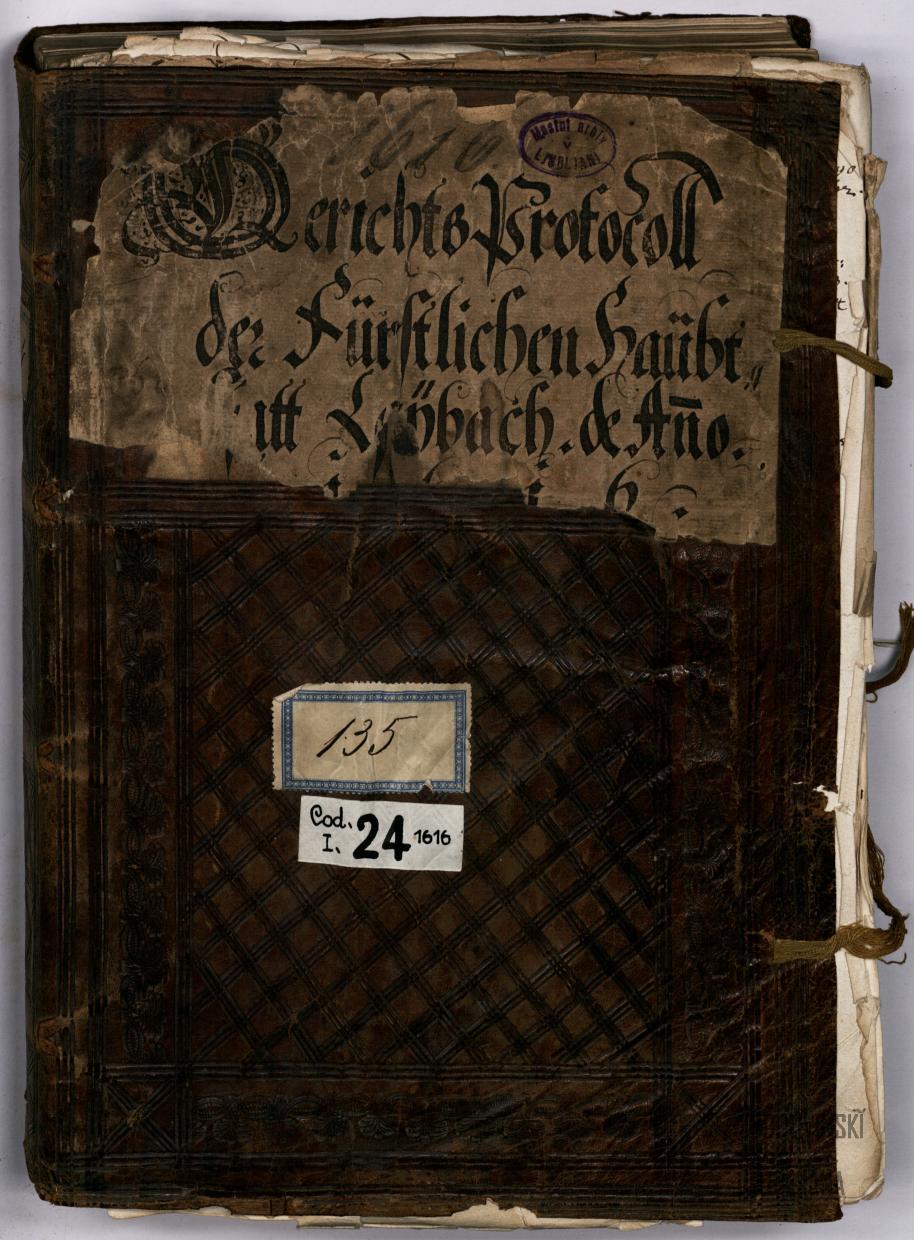 1616
Mestni arhiv
v
LJUBLJANI
Gerichts Protocoll
der Fürstlichen Haübt„
att Laÿbach. de Año.
i 6
135
Cod.
I. 24 1616
SKI